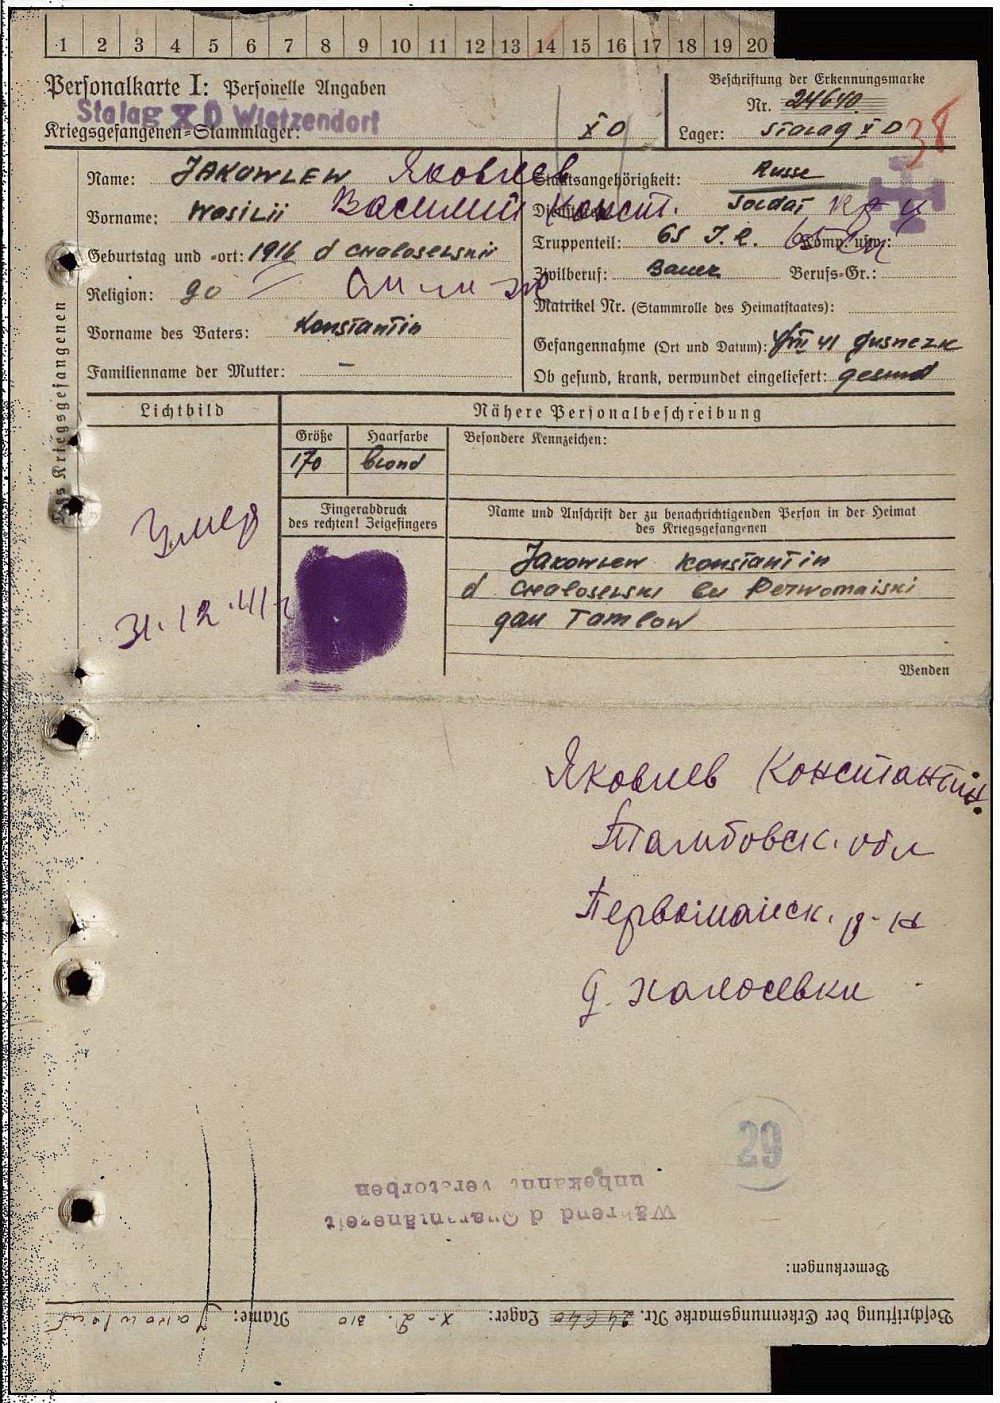 1 2 3 4 5 6 7 8 9 10 11 12 13 14 15 16 17 18 19 20
Personalkarte I: Personelle Angaben
Stalag X D Wietzendorf
Kriegsgefangenen=Stammlager: X D
Beschriftung der Erkennungsmarke
Nr. 24640
Lager: Stalag X D 38
des Kriegsgefangenen
Name: JAKOWLEW Яковлев
Vorname: Wasilii Василий Конст.
Geburtstag und =ort: 1916 d
Religion: go
Vorname des Vaters: Konstantin
Familienname der Mutter: –
Staatsangehörigkeit: Russe
Soldat
Truppenteil: 65 I.R. Komp. usw.:
Zivilberuf: Bauer Berufs=Gr.:
Matrikel Nr. (Stammrolle des Heimatstaates):
Gefangennahme (Ort und Datum): VIII 41
Ob gesund, krank, verwundet eingeliefert: gesund
Lichtbild
Nähere Personalbeschreibung
Größe Haarfarbe Besondere Kennzeichen:
170 blond
Fingerabdruck
des rechten! Zeigefingers
Name und Anschrift der zu benachrichtigenden Person in der Heimat
des Kriegsgefangenen
Jakowlew Konstantin
d Perwomaiski
gau Tamlow
Умер
31.12.41 г
Wenden
Яковлев Константин.
Тамбовск. обл
Первомайск. р-н
д. Халосевки
29
Während d Quarantänezeit
unbekannt verstorben
Bemerkungen:
Beschriftung der Erkennungsmarke Nr. 24640 Lager: X. D. 310 Name: Jakowlew